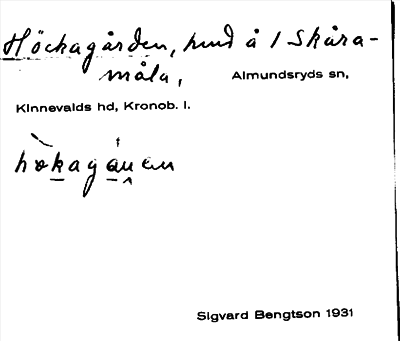 Höckagården, hmd å 1 Skåra-
måla,
Almundsryds sn,
Kinnevalds hd, Kronob. l.
Sigvard Bengtson 1931